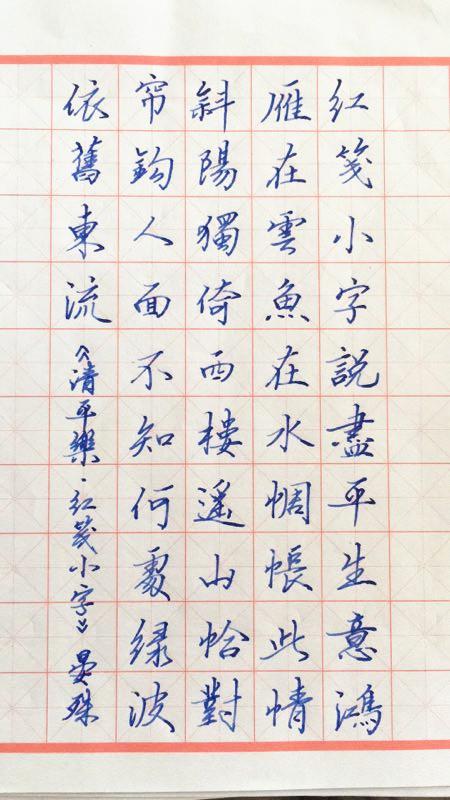 红笺小字說盡平生意鴻
雁在雲魚在水惆悵此情
斜陽獨倚西樓遥山恰對
帘鈎人面不知何處绿波
依舊東流《清平樂·红笺小字》晏殊